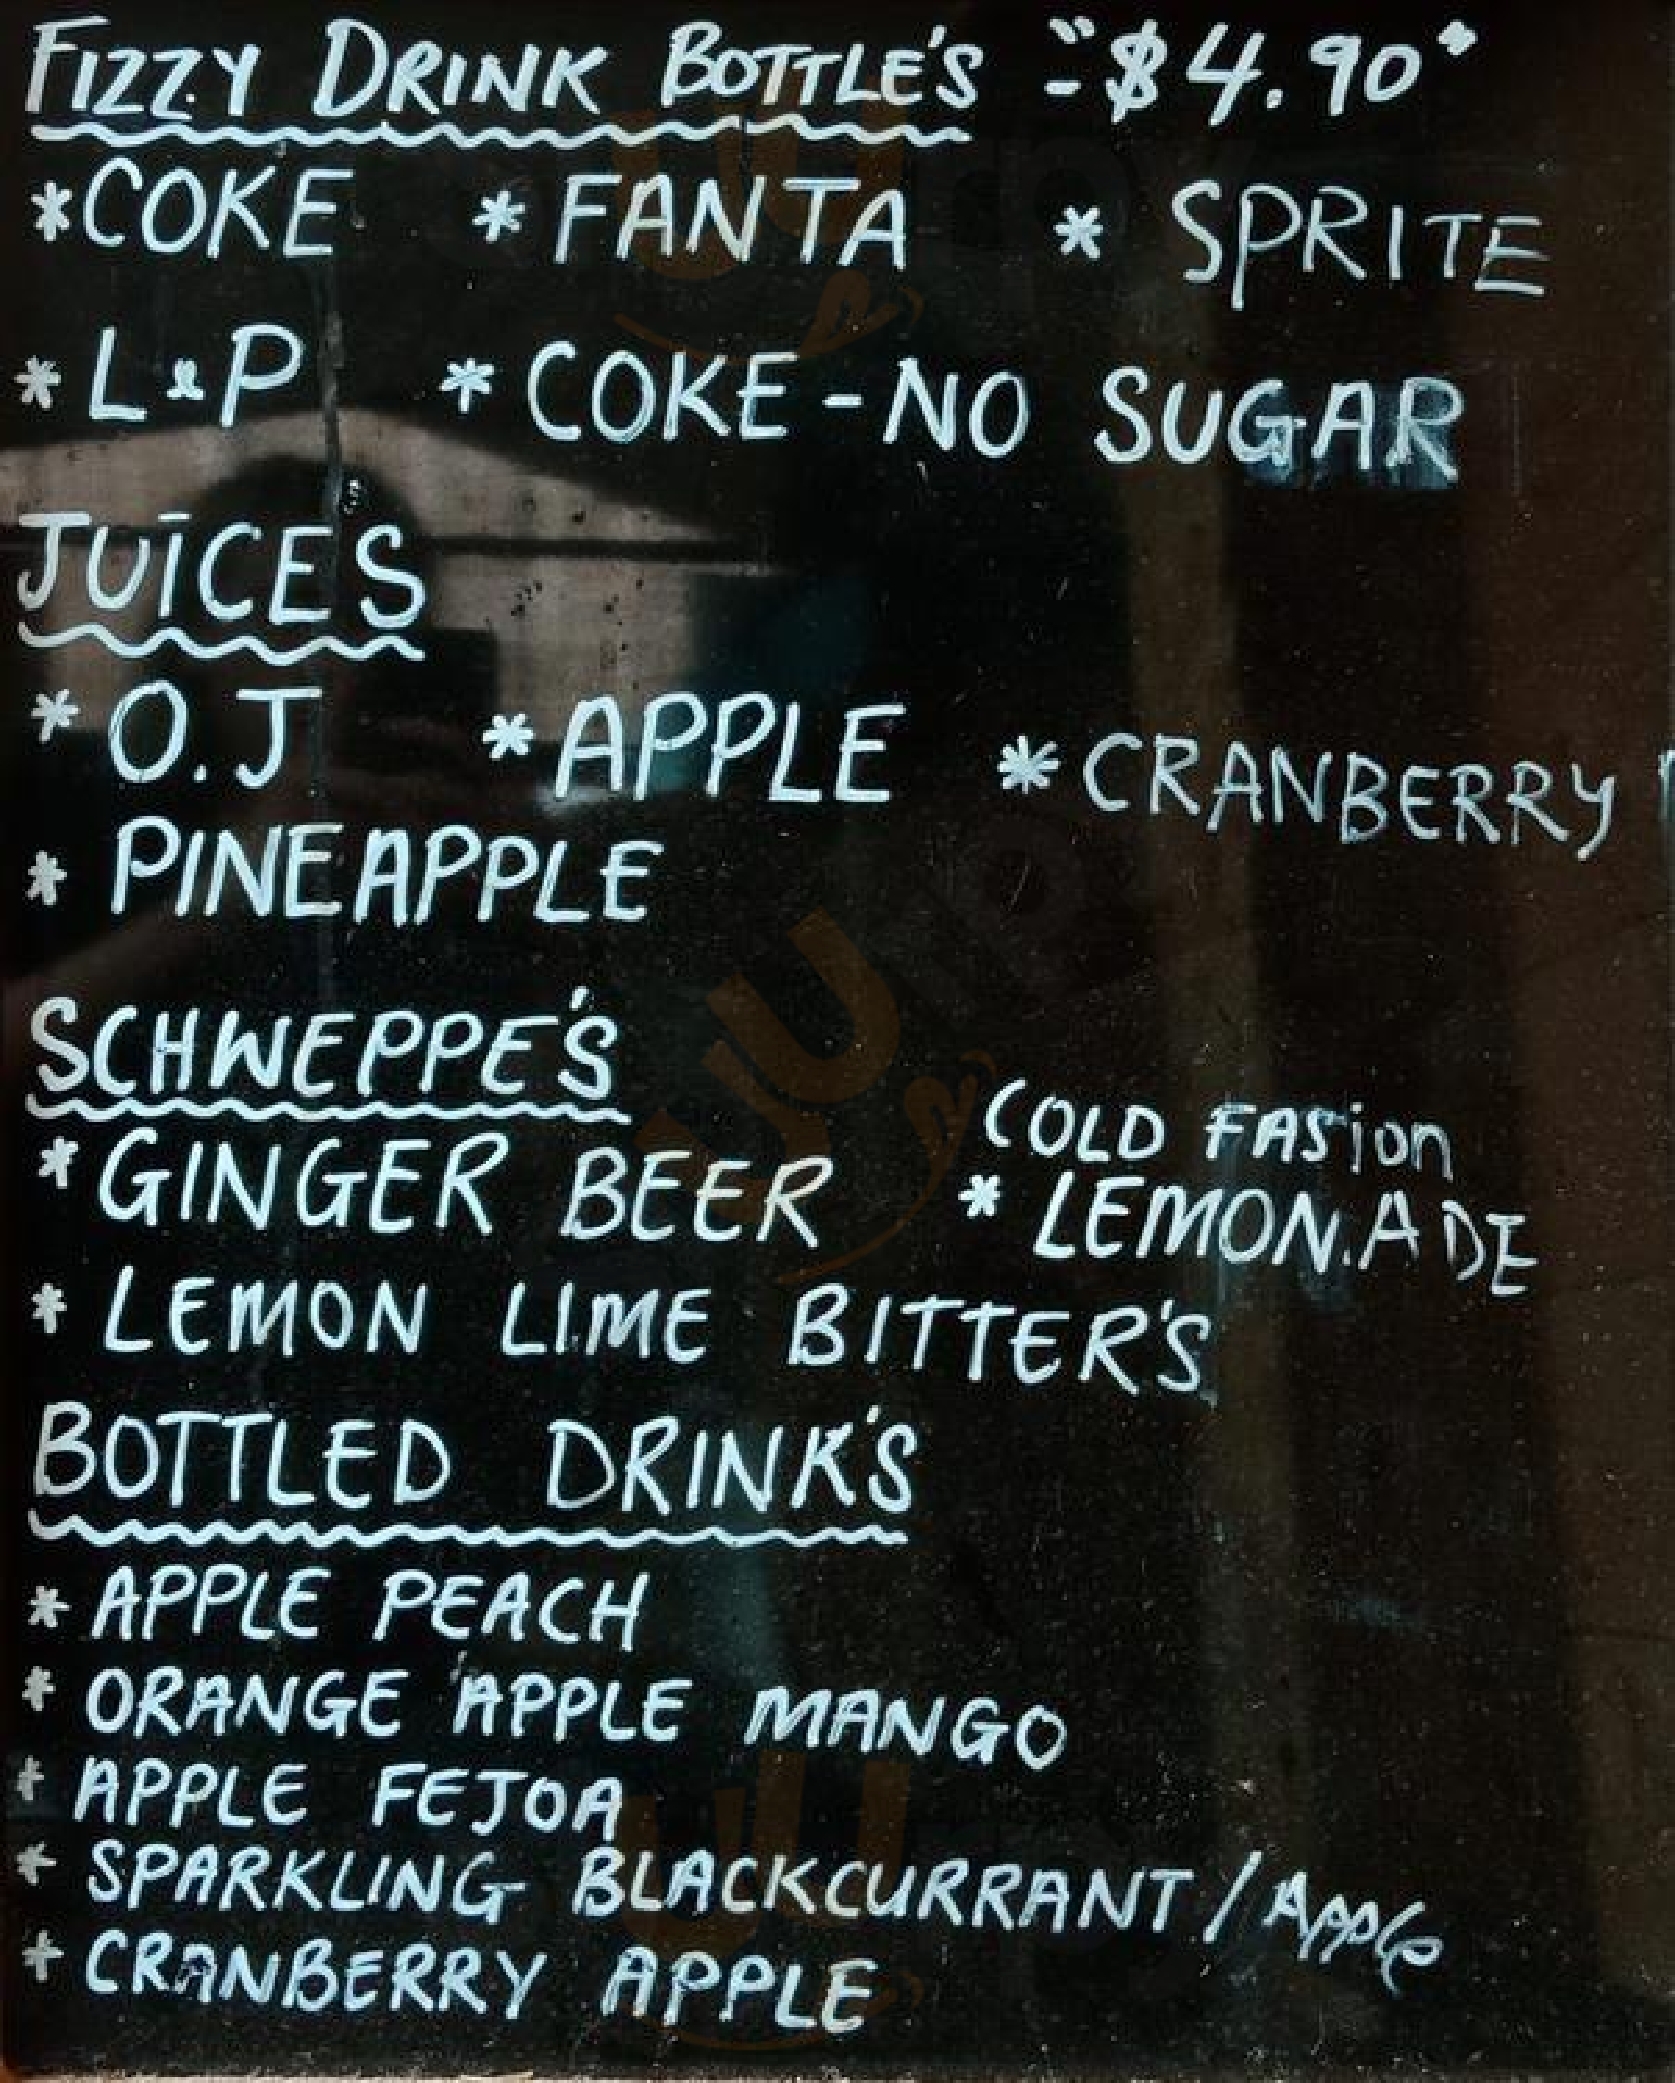 FIZZY DRINK BOTTLE'S - "$4.90"
*COKE *FANTA * SPRITE
* L&P * COKE-NO SUGAR
JUICES
* O.J * APPLE * CRANBERRY
* PINEAPPLE
SCHWEPPE'S
COLD FASion
* GINGER BEER * LEMON.ADE
* LEMON LIME BITTER'S
BOTTLED DRINK'S
* APPLE PEACH
* ORANGE APPLE MANGO
* APPLE FEJOA
* SPARKLING BLACKCURRANT / APPLe
* CRANBERRY APPLE